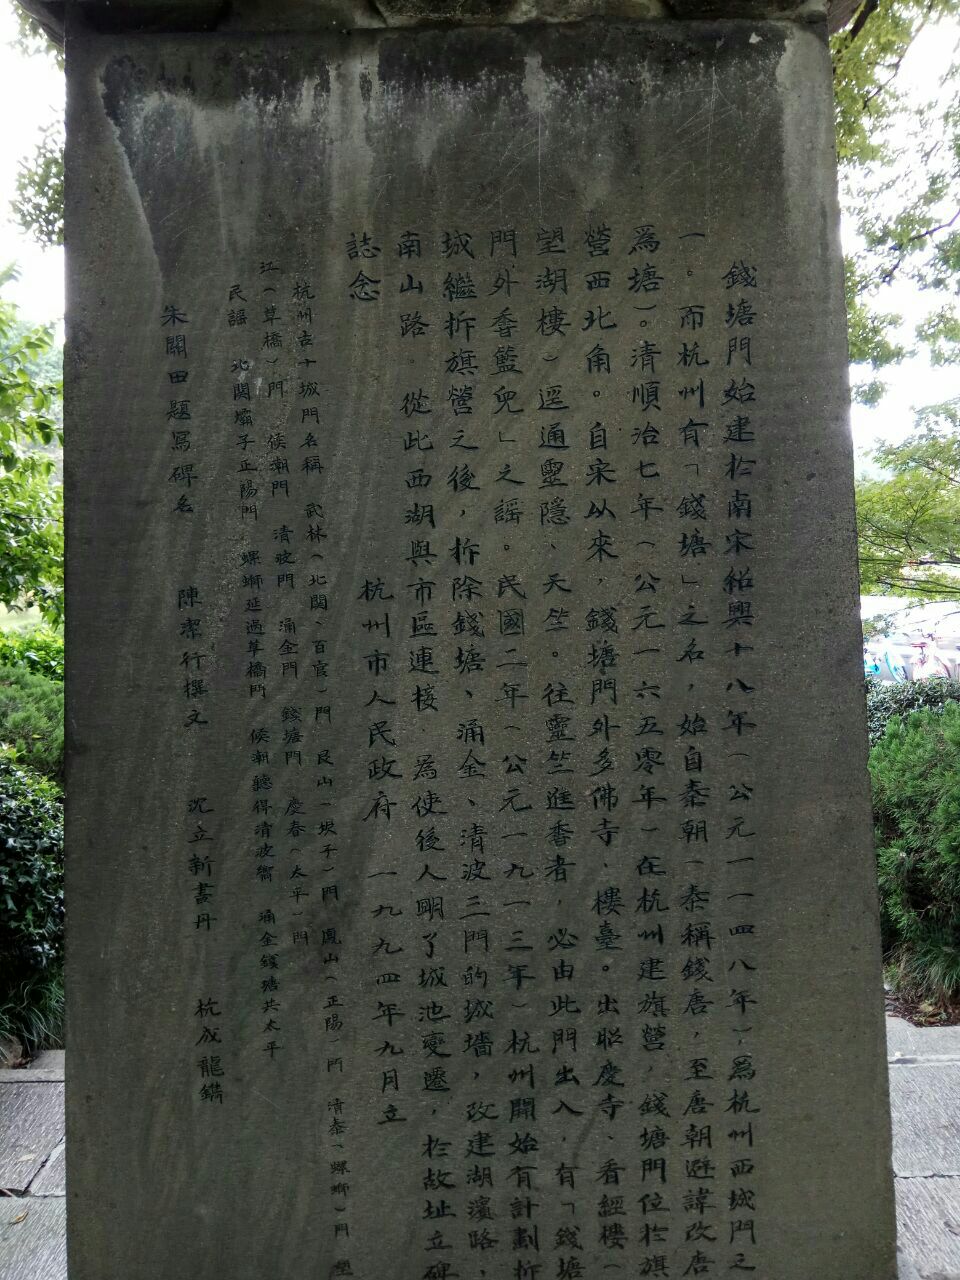 錢塘門始建於南宋紹興十八年（公元一一四八年），爲杭州西城門之
一。而杭州有「錢塘」之名，始自秦朝（秦稱錢唐，至唐朝避諱改唐
爲塘）。清順治七年（公元一六五零年）在杭州建旗營，錢塘門位於旗
營西北角。自宋以來，錢塘門外多佛寺、樓臺。出昭慶寺、看經樓（
望湖樓）逕通靈隱、天竺。往靈竺進香者，必由此門出入，有「錢塘
門外香籃兒」之謡。民國二年（公元一九一三年）杭州開始有計劃拆
城繼拆旗營之後，拆除錢塘、涌金、清波三門的城墻，改建湖濱路，
南山路。從此西湖與市區連接。為使後人明了城池變遷，於故址立碑
誌念
杭州市人民政府 一九九四年九月立
杭州古十城門名稱 武林（北関、百官）門 艮山（埧子）門 鳳山（正陽）門 清泰（螺螄）門 望
江（草橋）門 候潮門 清波門 涌金門 錢塘門 慶春（太平）門
民謡 北関壩子正陽門 螺螄延過草橋門 候潮聽得清波響 涌金錢塘共太平
朱關田題寫碑名 陳潔行撰文 沉立新書丹 杭成龍鐫